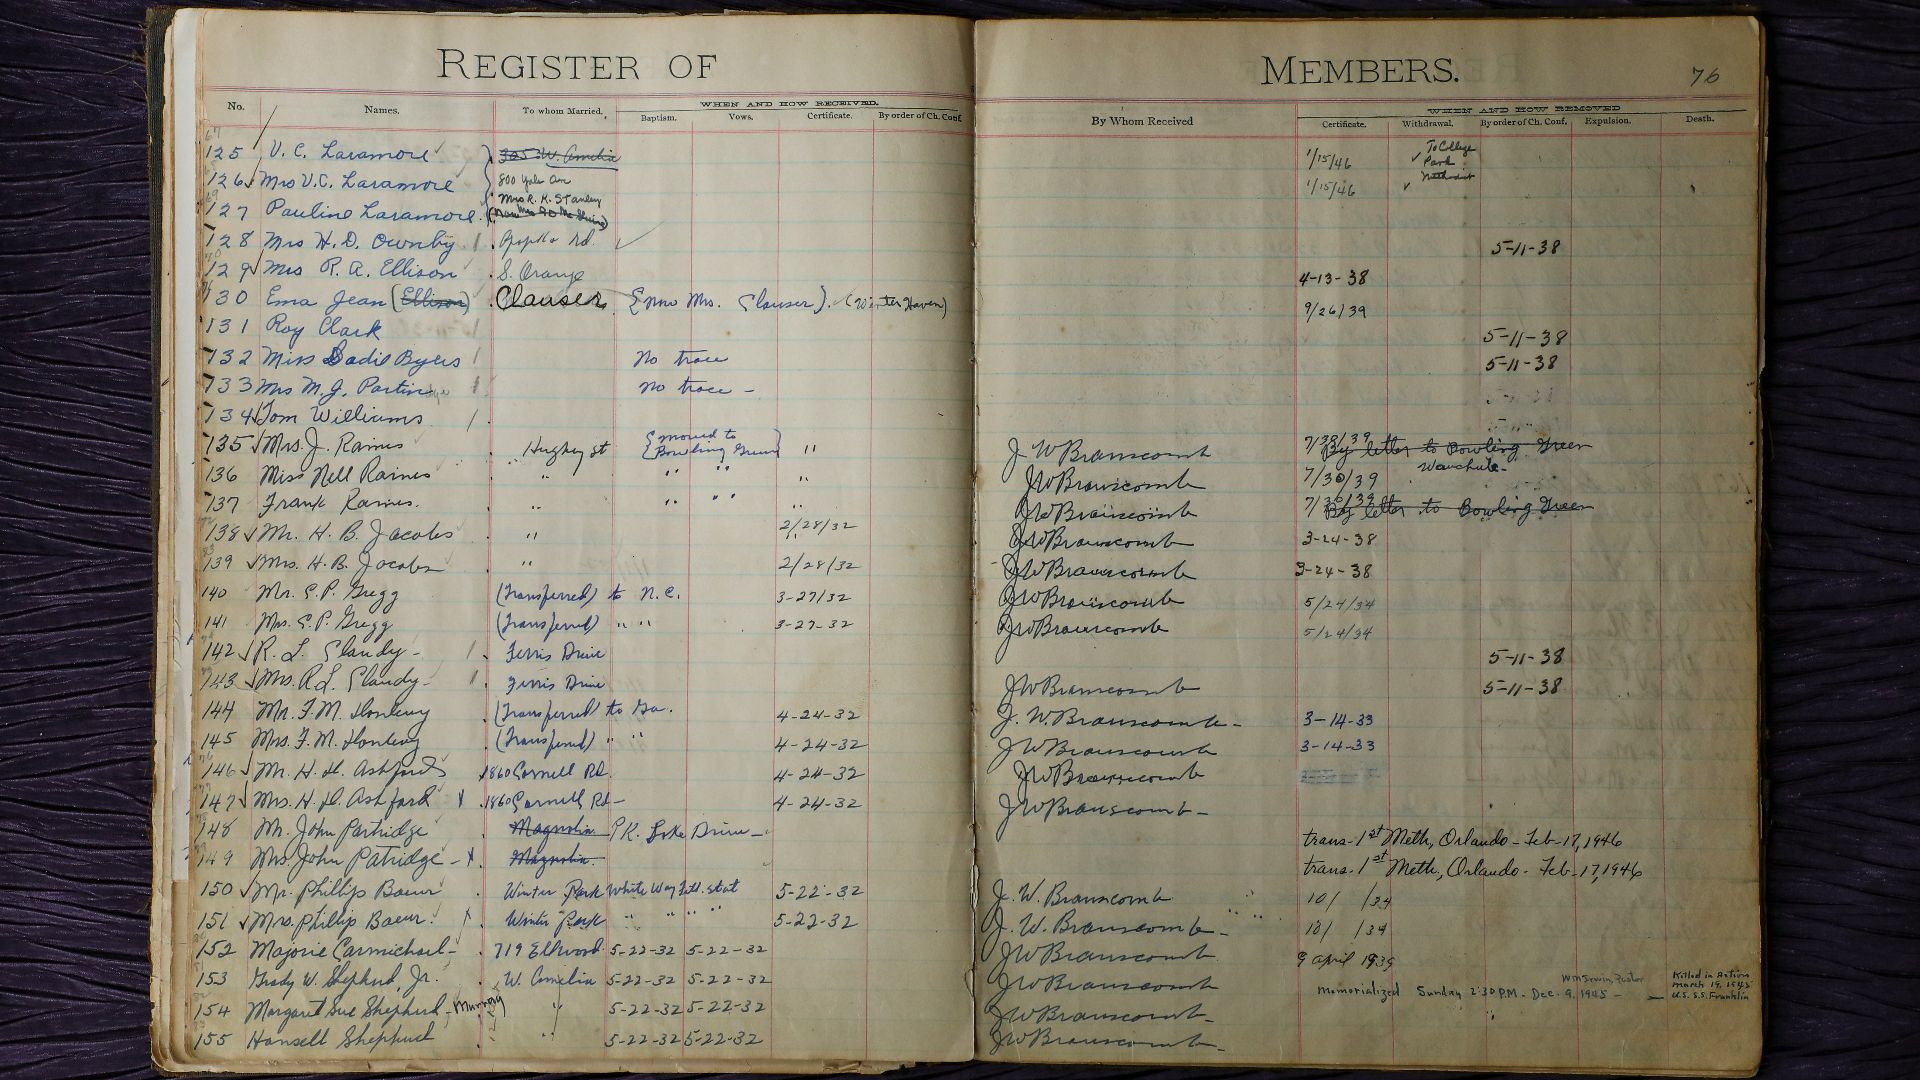 REGISTER OF MEMBERS. 76
No. Names. To whom Married. WHEN AND HOW RECEIVED. By Whom Received WHEN AND HOW REMOVED
Baptism. Vows. Certificate. By order of Ch. Conf. Certificate. Withdrawal. By order of Ch. Conf. Expulsion. Death.
125 V. C. Laramore 305 W. Amelia 1/15/46 To College Park Methodist
126 Mrs V.C. Laramore 800 Yale Av 1/15/46
127 Pauline Laramore Mrs R. K. Stanley
128 Mrs H. D. Ownby Rd. 5-11-38
129 Mrs R. A. Ellison S. Orange 4-13-38
130 Ema Jean (Ellison) Clauser {now Mrs. Clauser}. (Winter Haven) 9/26/39
131 Roy Clark 5-11-38
132 Miss Sadie Byers No trace 5-11-38
133 Mrs M. J. Partin No trace -
134 Tom Williams
135 Mrs. J. Raines Hughey st {moved to Bowling Green} " J W Branscomb 7/30/39 By letter to Bowling Green
136 Miss Nell Raines " " " " JW Branscomb 7/30/39 Wauchula-
137 Frank Raines. " " " " JW Branscomb 7/30/39 By letter to Bowling Green
138 Mr. H. B. Jacobs " 2/28/32 JW Branscomb 3-24-38
139 Mrs. H. B. Jacobs " 2/28/32 JW Branscomb 3-24-38
140 Mr. C. P. Gregg (Transferred) to N.C. 3-27/32 JW Branscomb 5/24/34
141 Mrs. C. P. Gregg (Transferred) " " 3-27-32 JW Branscomb 5/24/34
142 R. L. Clandy - Ferris Drive 5-11-38
143 Mrs. R L. Clandy - Ferris Drive JW Branscomb 5-11-38
144 Mr. F. M. (Transferred) to Ga. 4-24-32 J. W. Branscomb - 3-14-33
145 Mrs. F. M. (Transferred) " " 4-24-32 JW Branscomb 3-14-33
146 Mr. H. H. Ashford 1860 Cornell Rd. 4-24-32 JW Branscomb
147 Mrs. H. H. Ashford 1860 Cornell Rd - 4-24-32 JW Branscomb -
148 Mr. John Partridge Magnolia PK. Lake Drive - trans. 1st Meth, Orlando - Feb 17, 1946
149 Mrs. John Patridge - x Magnolia. trans. 1st Meth, Orlando - Feb 17, 1946
150 Mr. Phillip Baeur Winter Park White Way Fill. stat 5-22-32 J. W. Branscomb 10/ /34
151 Mrs Phillip Baeur. x Winter Park " " " " 5-22-32 J. W. Branscomb - 10/ /34
152 Majorie Carmichael - 719 Ellwood 5-22-32 5-22-32 JW Branscomb 9 April 1939
153 Grady W. Shepherd, Jr. W. Amelia 5-22-32 5-22-32 JW Branscomb Memorialized Sunday 2:30 P.M. - Dec. 9, 1945 - Wm Irwin, Pastor Killed in Action March 19, 1945 U.S.S. Franklin
154 Margaret Sue Shepherd - Murray " 5-22-32 5-22-32 JW Branscomb -
155 Hansell Shepherd " 5-22-32 5-22-32 JW Branscomb -